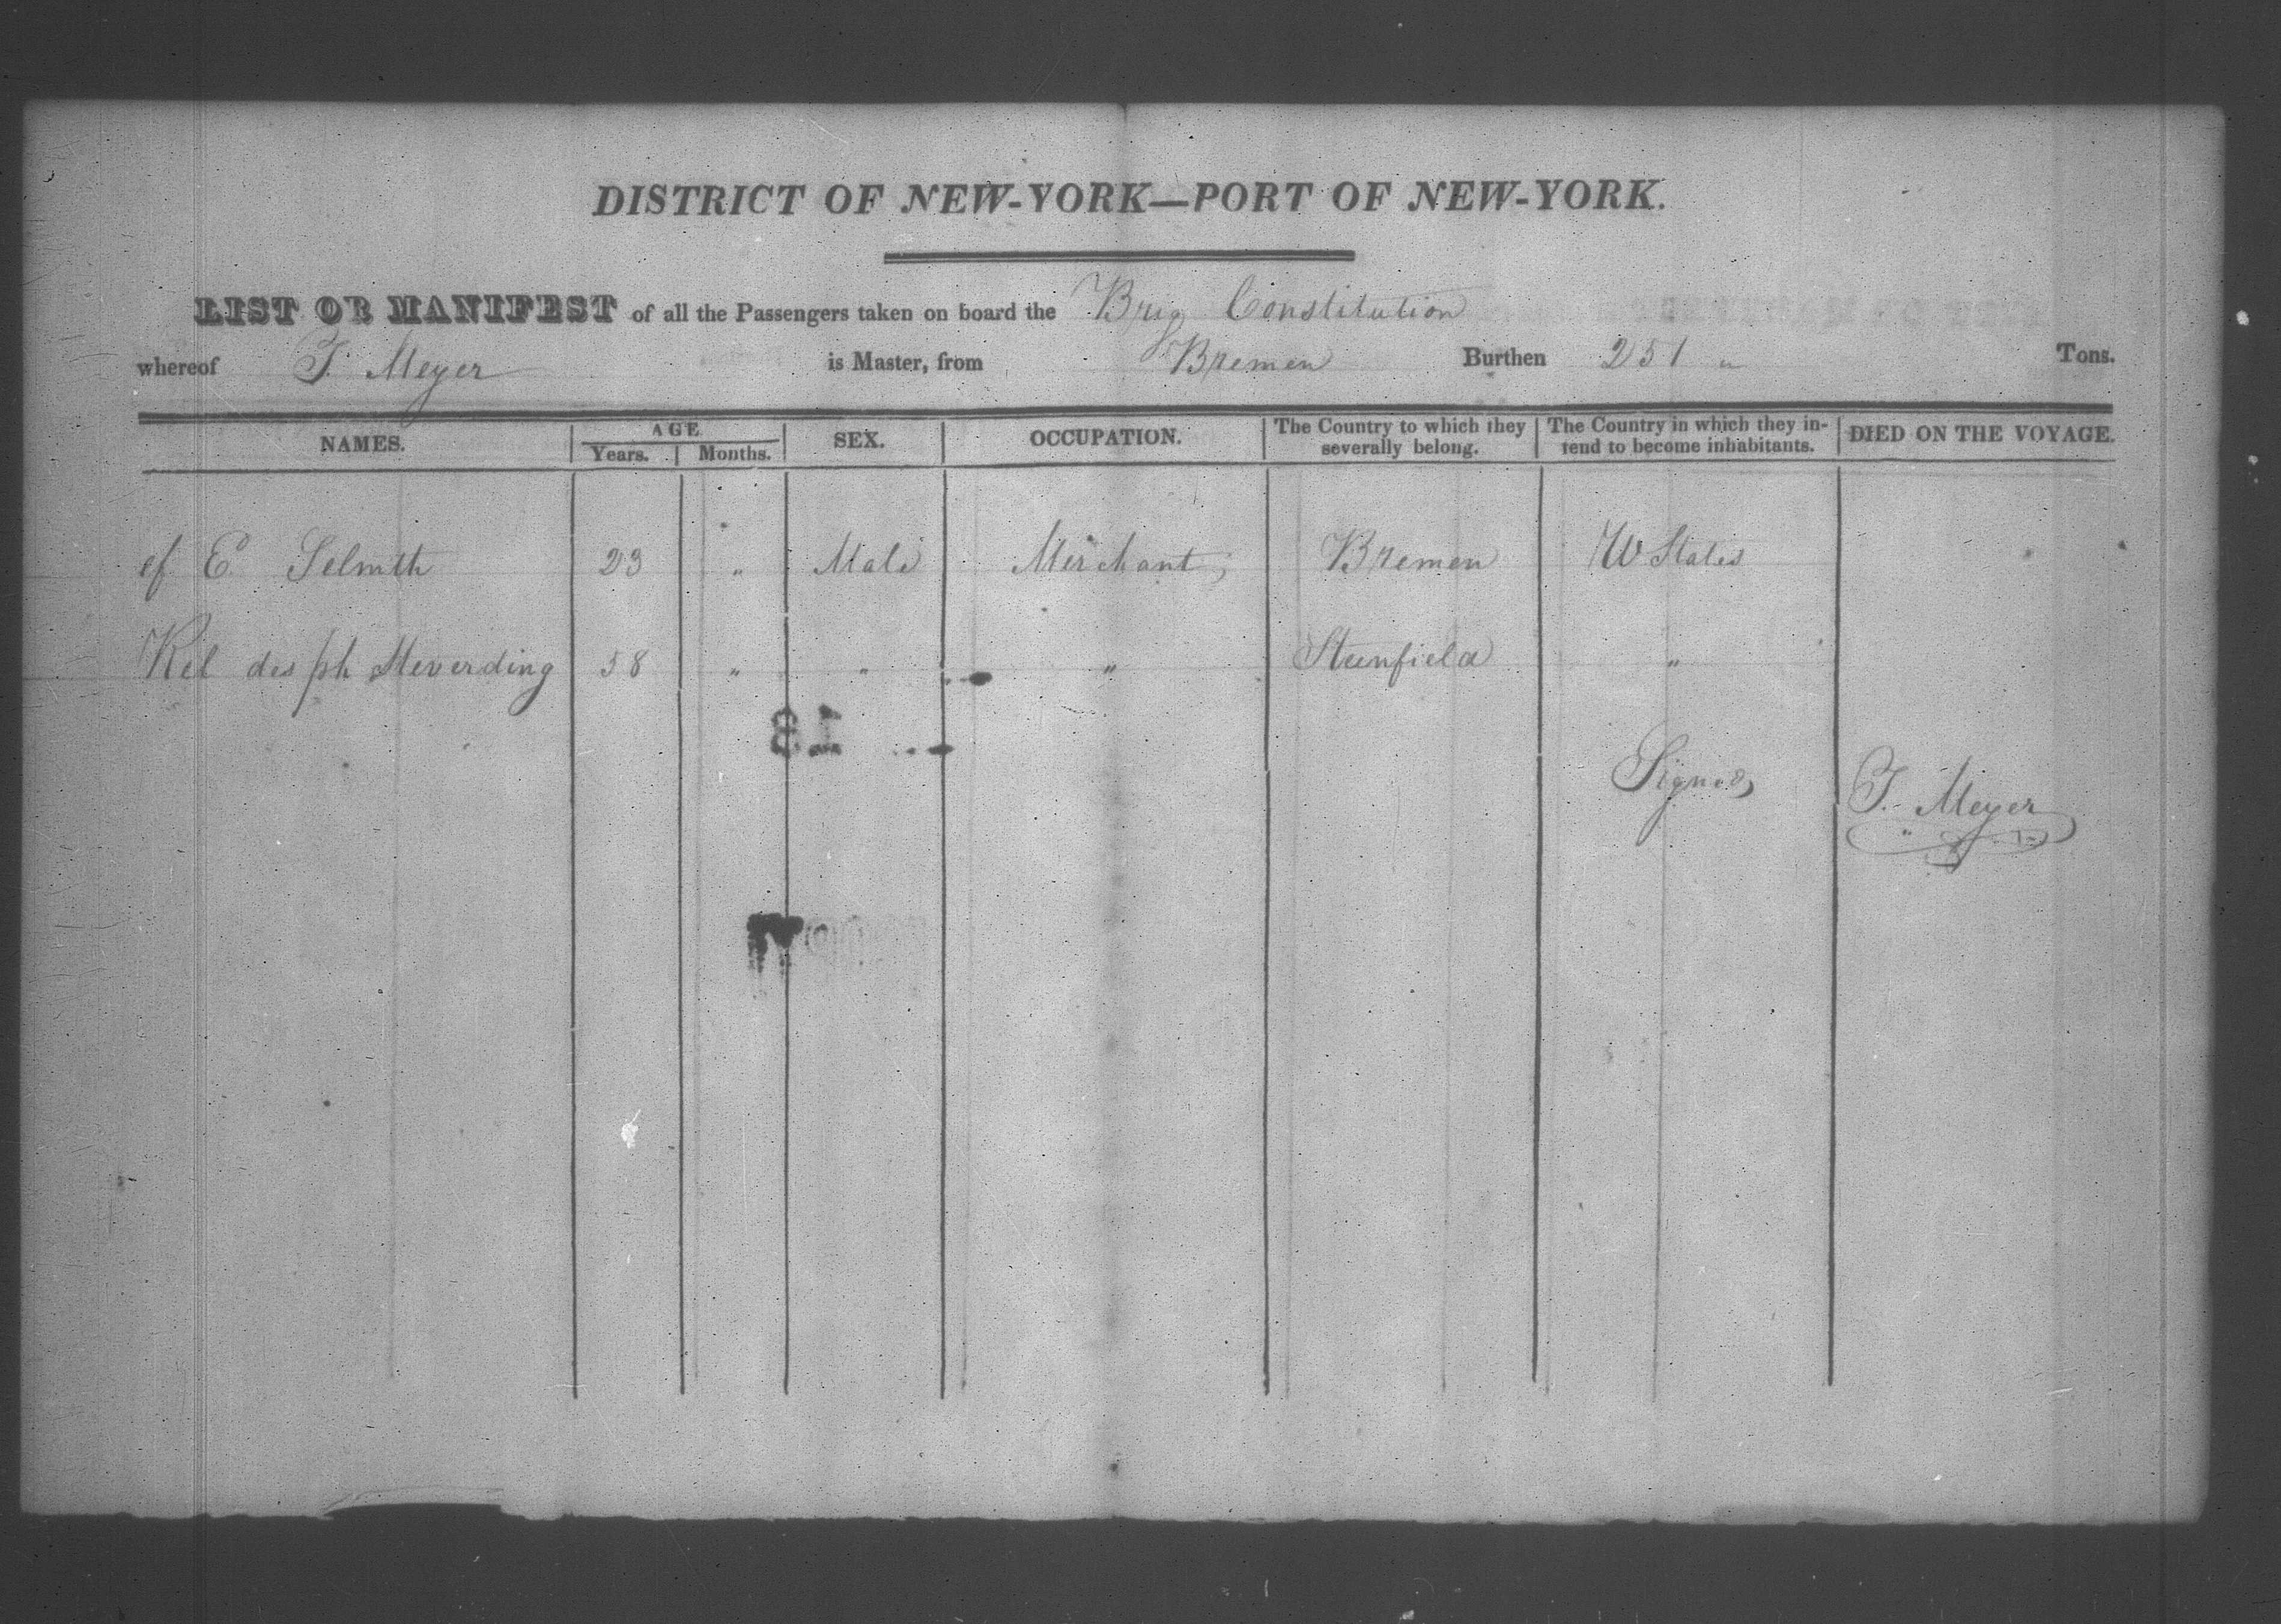 DISTRICT OF NEW-YORK—PORT OF NEW-YORK.
LIST OR MANIFEST of all the Passengers taken on board the Brig Constitution
whereof F. Meyer is Master, from Bremen Burthen 251 " Tons.
NAMES. AGE Years. Months. SEX. OCCUPATION. The Country to which they severally belong. The Country in which they intend to become inhabitants. DIED ON THE VOYAGE.
E. Selmth 23 " Male Merchant, Bremen U States
des ph Meverding 58 " " " Steenfield "
18
Signed F. Meyer